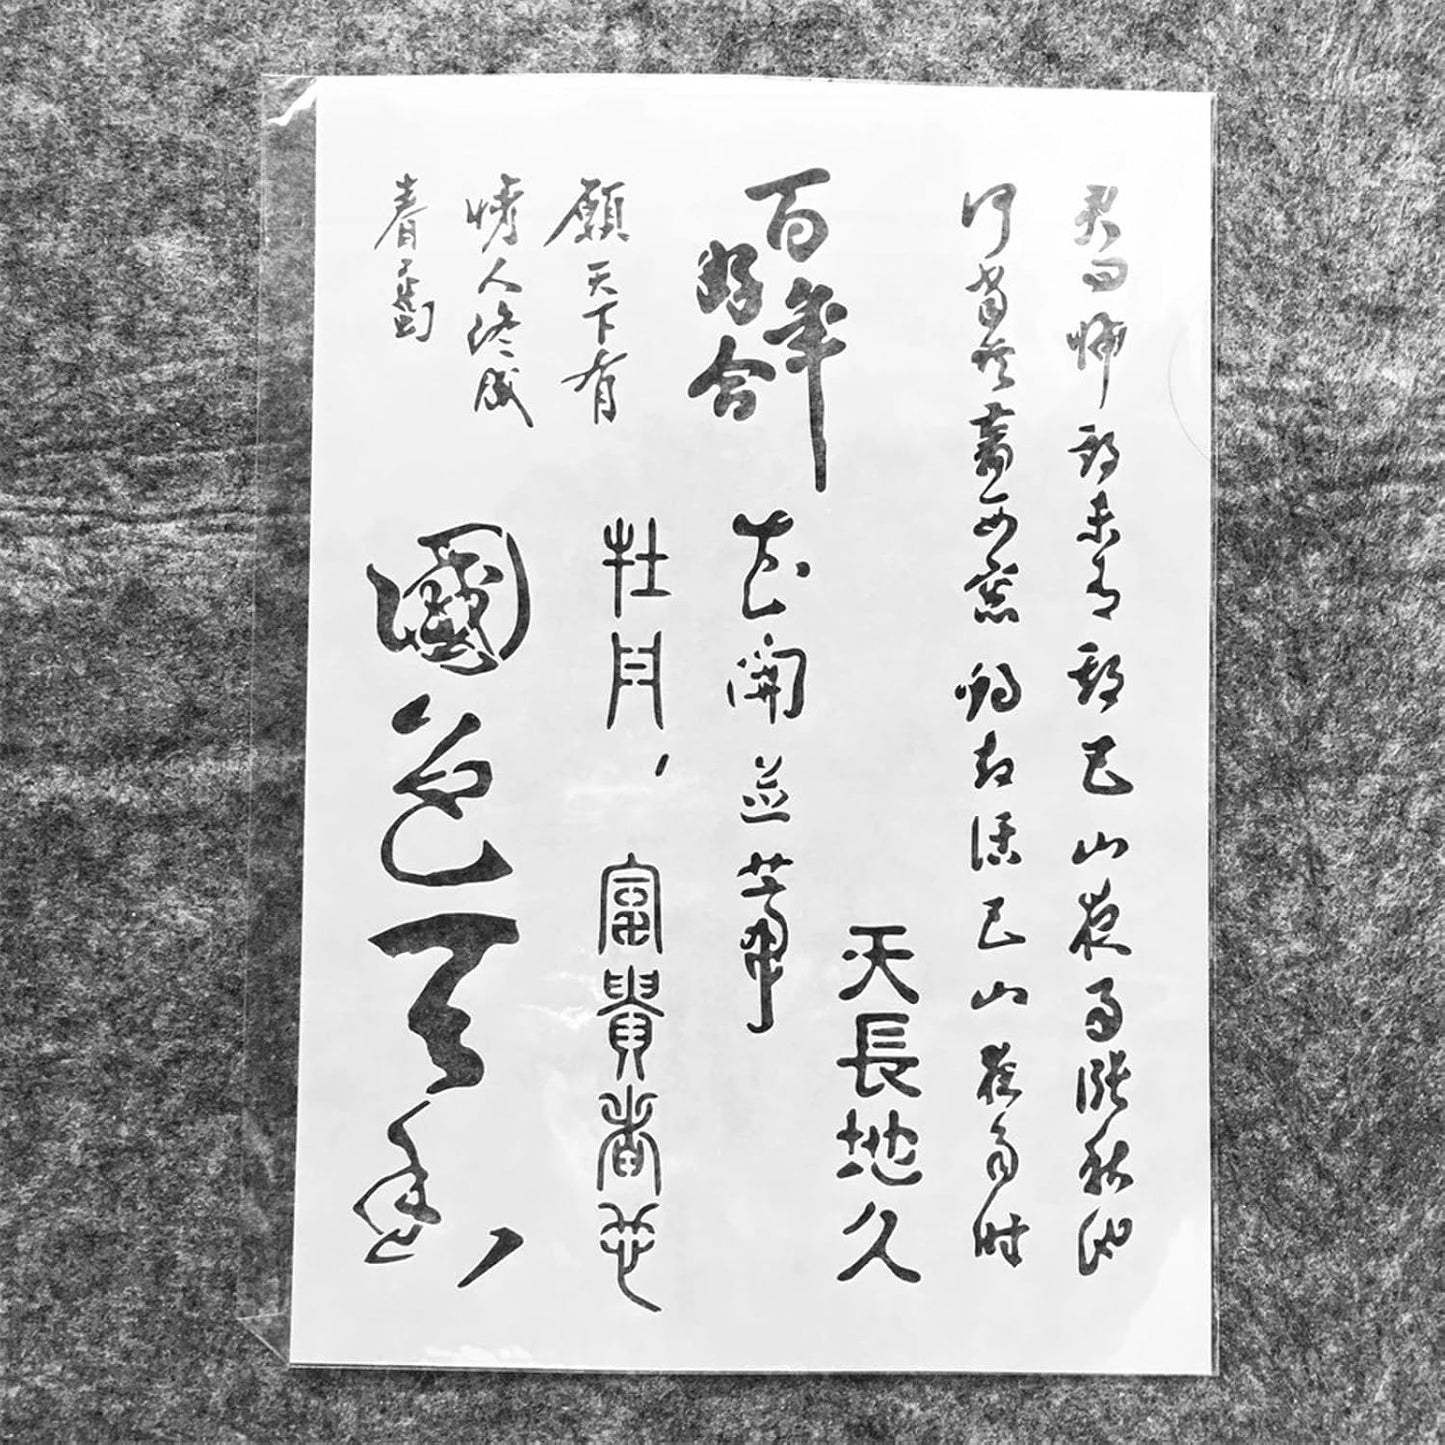 君問歸期未有期巴山夜雨漲秋池
何當共翦西窗燭却話巴山夜雨時
天長地久
百年
好合
花開並蒂
願天下有
情人終成
眷屬
牡丹，富貴
國色天香，